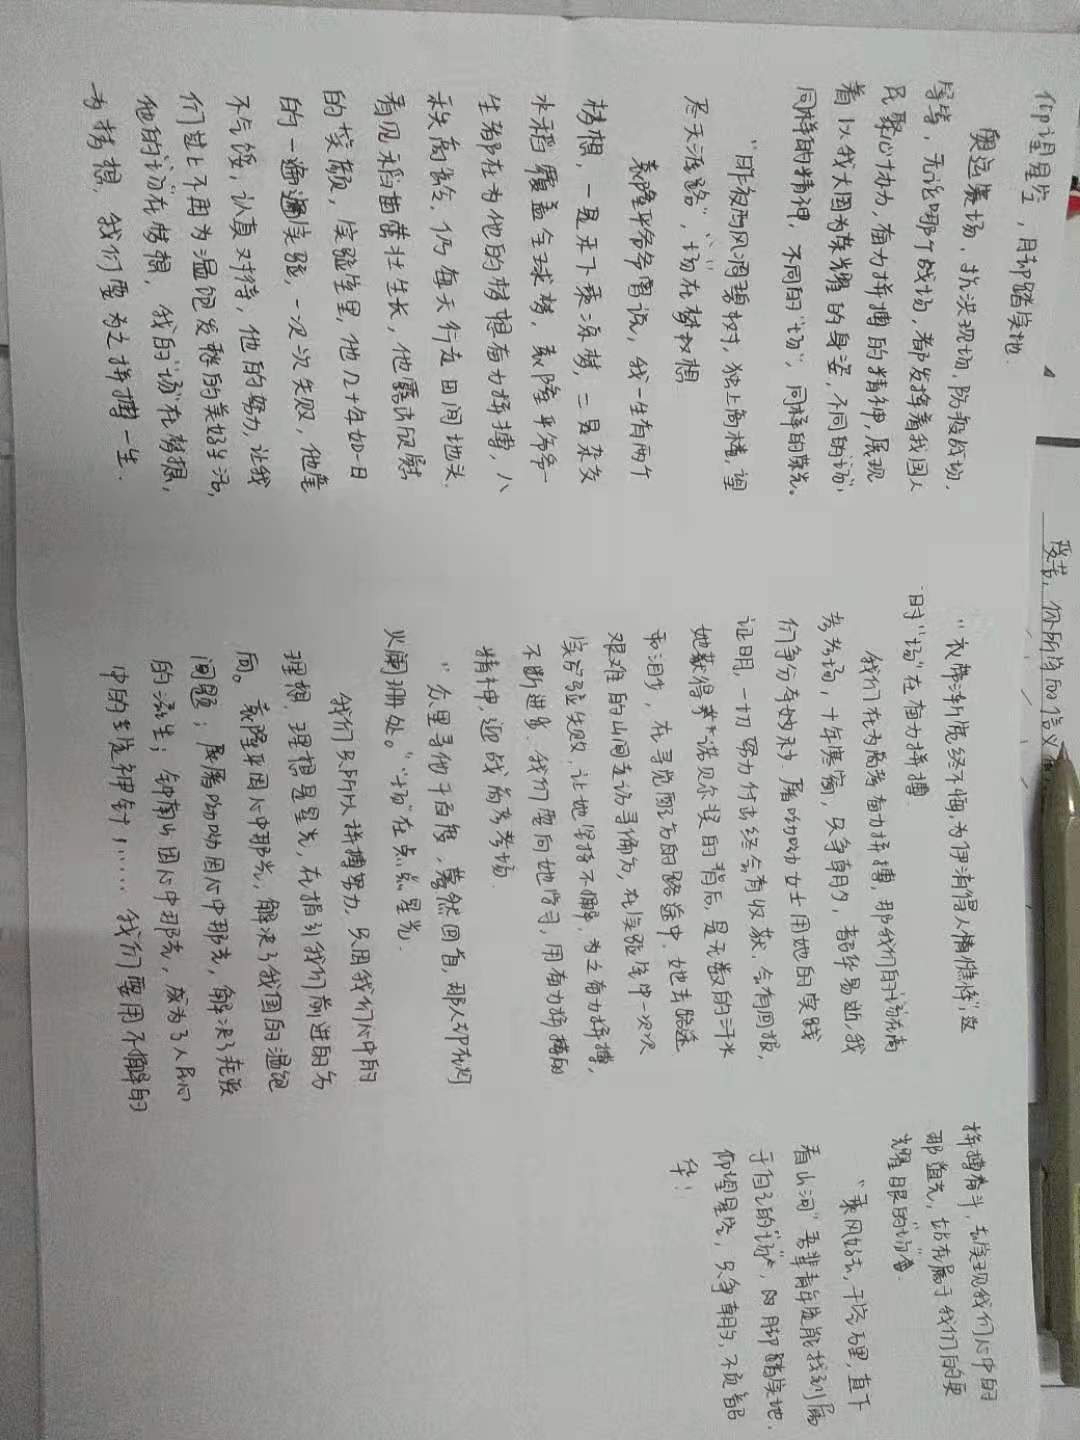 仰望星空，用脚踏实地.
奥运赛场，抗洪现场，阅教战场，
寄皆，无论哪个战场，都发挥着我国人
民聚心协力，奋力拼搏的精神，展现
着以我大国为荣耀的身姿，不同的"场"，
同样的精神，不同的"场"，同样的荣光。
"昨夜西风凋碧树，独上高楼，望
尽天涯路"，"场"在梦想
袁隆平爷爷曾说，我一生有两个
梦想，一是禾下乘凉梦，二是杂交
水稻覆盖全球梦，袁隆平爷爷一
生都在为他的梦想奋力拼搏，八
秩高龄，仍每天行走田间地头.
看见稻苗茁壮生长，他露出欣慰
的笑颜，实验室里，他几十年如一日
的一遍遍实验，一次次失败，他毫
不气馁，认真对待，他的努力，让我
们过上不再为温饱发愁的美好生活，
他的"场"在梦想，我的"场"在梦想，
有梦想，我们要为之拼搏一生.
"衣带渐宽终不悔，为伊消得人憔悴"，这
时"场"在奋力拼搏.
我们在为高考奋力拼搏，那我们的"场"在高
考考场，十年寒窗，只争朝夕，韶华易逝，我
们争分夺秒 屠呦呦女士用她的实践
证明，一切努力付出终会有收获，会有回报，
她获得诺贝尔奖的背后，是无数的汗水
和泪水，在寻觅配方的路途中，她去路途
艰难的山间走访寻偏方，在实验室中一次次
实验失败，让她坚持不懈，为之奋力拼搏，
不断进步，我们要向她学习，用奋力拼搏的
精神，迎战高考考场.
"众里寻他千百度，蓦然回首，那人却在灯
火阑珊处。""场"在点点星光.
我们只所以拼搏努力，只因我们心中的
理想，理想是星光，在指引我们前进的方
向。袁隆平因心中那光，解决了我国的温饱
问题；屠呦呦因心中那光，解决了疟疾
的滋生；钟南山因心中那光，成为了人民心
中的定海神针；……我们要用不懈的
拼搏奋斗，去实现我们心中的
那道光，站在属于我们的更
耀眼的"场"
"乘风好去，长空万里，直下
看山河"吾辈青年定能找到属
于自己的"场"，用脚踏实地，
仰望星空，只争朝夕，不负韶
华！